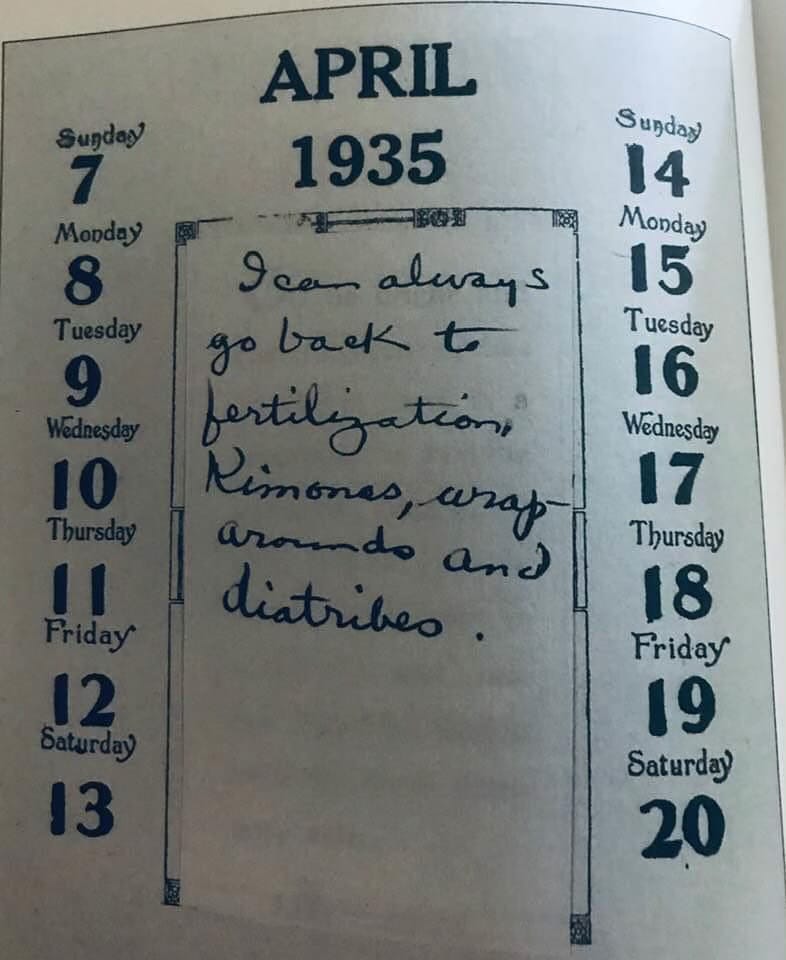 APRIL
1935
Sunday
7
Monday
8
Tuesday
9
Wednesday
10
Thursday
11
Friday
12
Saturday
13
I can always
go back to
fertilization,
Kimonos, wrap-
arounds and
diatribes.
Sunday
14
Monday
15
Tuesday
16
Wednesday
17
Thursday
18
Friday
19
Saturday
20